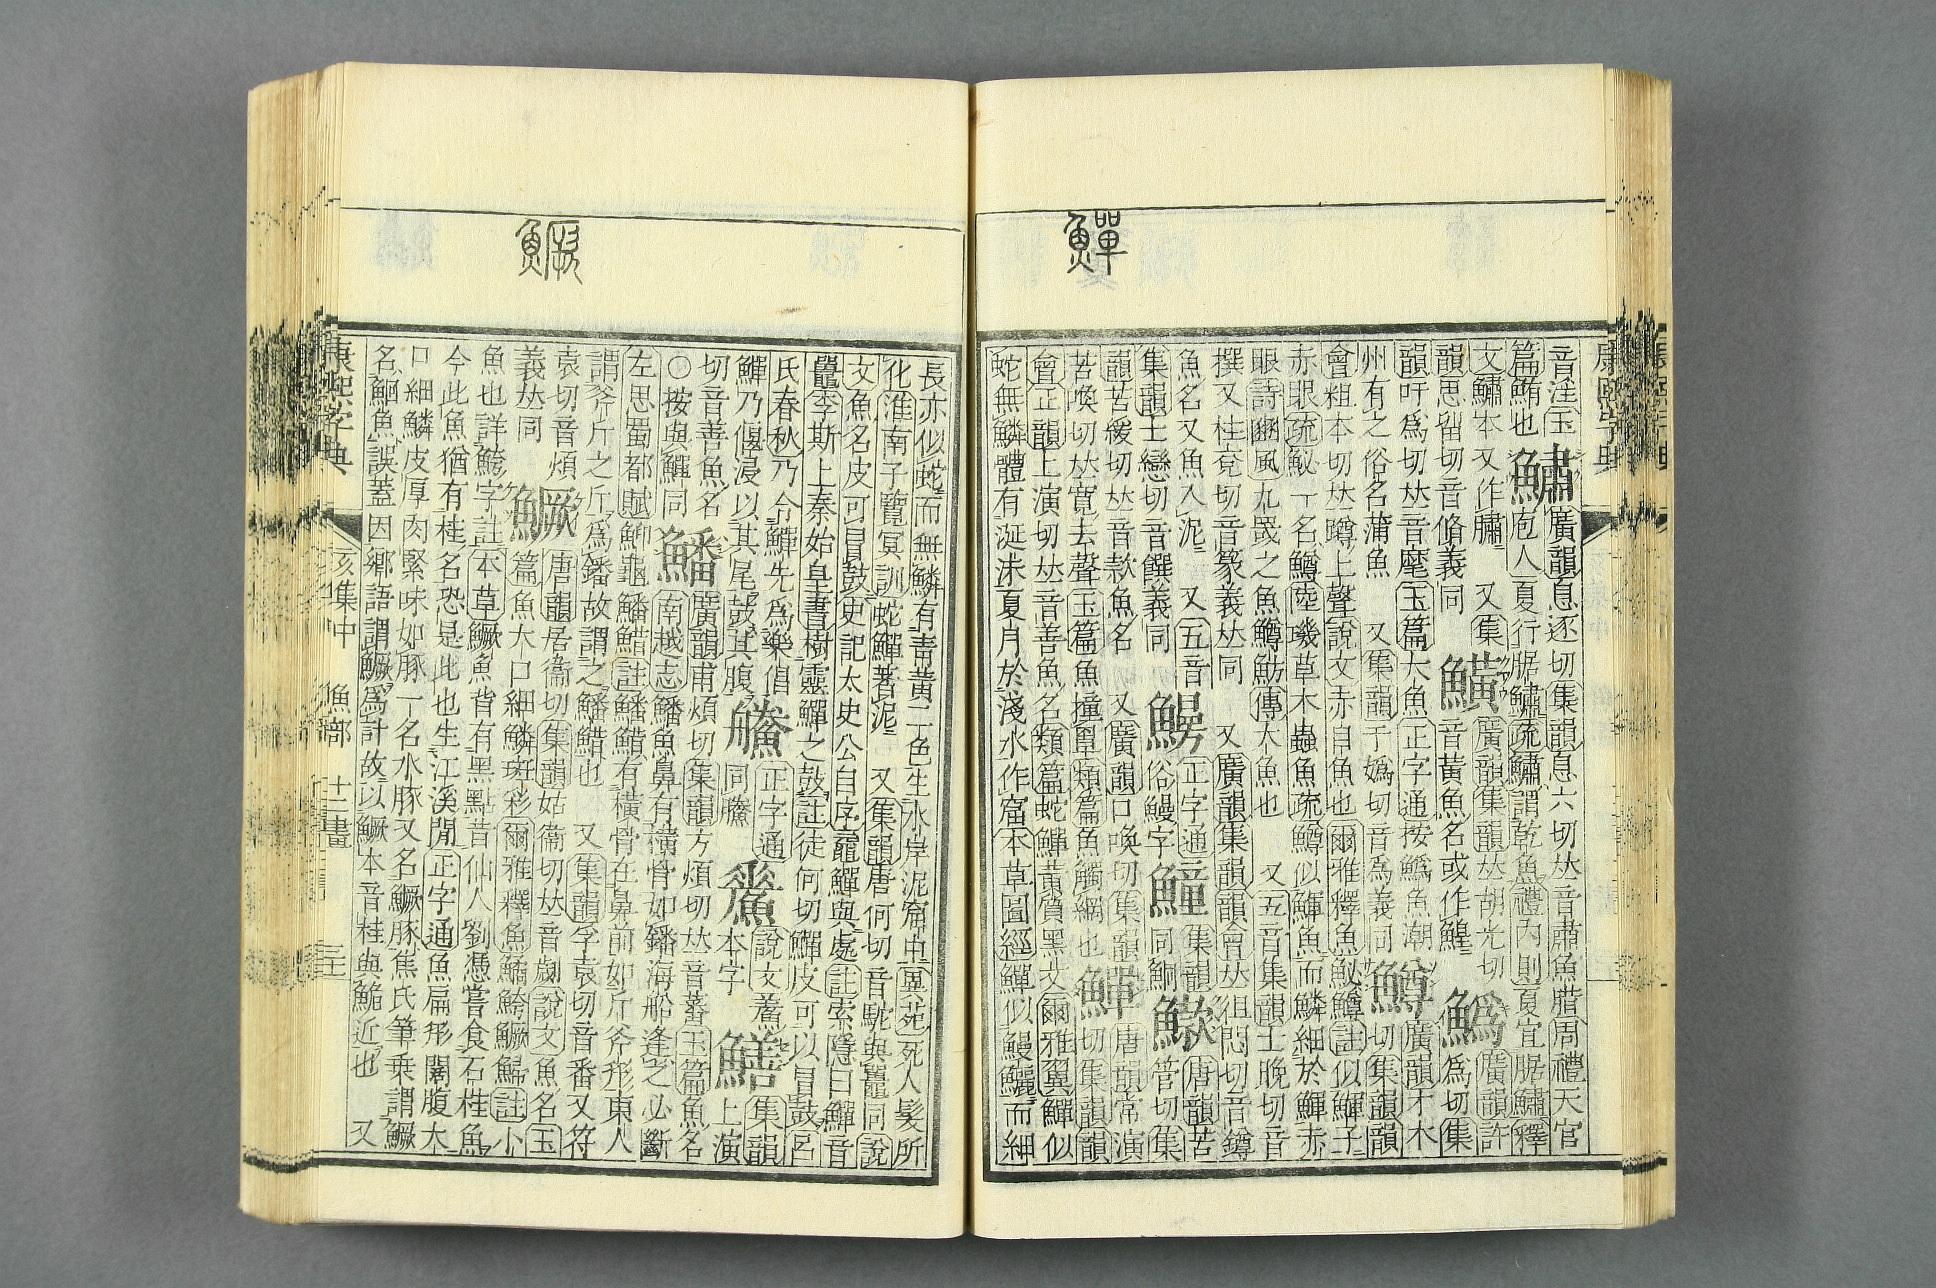 康熙字典
鱓
音注玉
篇鮪也
鱐
廣韻息逐切集韻息六切𠀤音肅魚腊周禮天官
庖人夏行腒鱐疏鱐謂乾魚禮內則夏宜腒鱐釋
文鱐本又作驌 又集
韻思留切音脩義同
鱑
廣韻集韻𠀤胡光切
音黃魚名或作鰉
廣韻許
爲切集
韻吁爲切𠀤音麾玉篇大魚正字通按 魚潮
州有之俗名蒲魚 又集韻于嬀切音爲義同
鱒
廣韻才本
切集韻韻
會粗本切𠀤蹲上聲說文赤目魚也爾雅釋魚鮅鱒註似鯶子
赤眼疏鮅一名鱒陸璣草木蟲魚疏鱒似鯶魚而鱗細於鯶赤
眼詩豳風九罭之魚鱒魴傳大魚也 又五音集韻士晚切音
撰又柱兗切音篆義𠀤同 又廣韻集韻韻會𠀤徂悶切音鐏
魚名又魚入泥 又五音
集韻士戀切音饌義同
正字通
俗鰻字
集韻
同鮦
唐韻苦
管切集
韻苦緩切𠀤音款魚名 又廣韻口喚切集韻
苦喚切𠀤寬去聲玉篇魚撞罩類篇魚觸網也
鱓
唐韻常演
切集韻韻
會正韻上演切𠀤音善魚名類篇蛇鱓黃質黑文爾雅翼鱓似
蛇無鱗體有涎沫夏月於淺水作窟本草圖經鱓似鰻鱺而細
鱖
長亦似蛇而無鱗有靑黃二色生水岸泥窟中異苑死人髮所
化淮南子覽冥訓蛇鱓著泥 又集韻唐何切音駝與鼉同說
文魚名皮可冒鼓史記太史公自序黿鱓與處註索隱曰鱓音
鼉李斯上秦始皇書樹靈鱓之鼓註徒何切鱓皮可以冒鼓呂
氏春秋乃令鱓先爲樂倡
鱓乃偃浸以其尾鼓其腹
正字通
同騰
鮺
說文鮺
本字
鱔
集韻
上演
切音善魚名
○按與鱓同
鱕
廣韻甫煩切集韻方煩切𠀤音蕃玉篇魚名
南越志鱕魚鼻有橫骨如鐇海船逢之必斷
左思蜀都賦鮣龜鱕䱜註鱕䱜有橫骨在鼻前如斤斧形東人
謂斧斤之斤爲鐇故謂之鱕䱜也 又集韻孚袁切音番又符
袁切音煩
義𠀤同
鱖
唐韻居衞切集韻姑衞切𠀤音劌說文魚名玉
篇魚大口細鱗斑彩爾雅釋魚鱊鮬鱖鯞註小
魚也詳鮬字註本草鱖魚背有黑點昔仙人劉憑嘗食石桂魚
今此魚猶有桂名恐是此也生江溪閒正字通魚扁形闊腹大
口細鱗皮厚肉緊味如豚一名水豚又名鱖豚焦氏筆乗謂鱖
名鮰魚誤蓋因鄉語謂鱖爲計故以鱖本音桂與鮠近也 又
康熙字典
亥集中 魚部 十二畫
三十